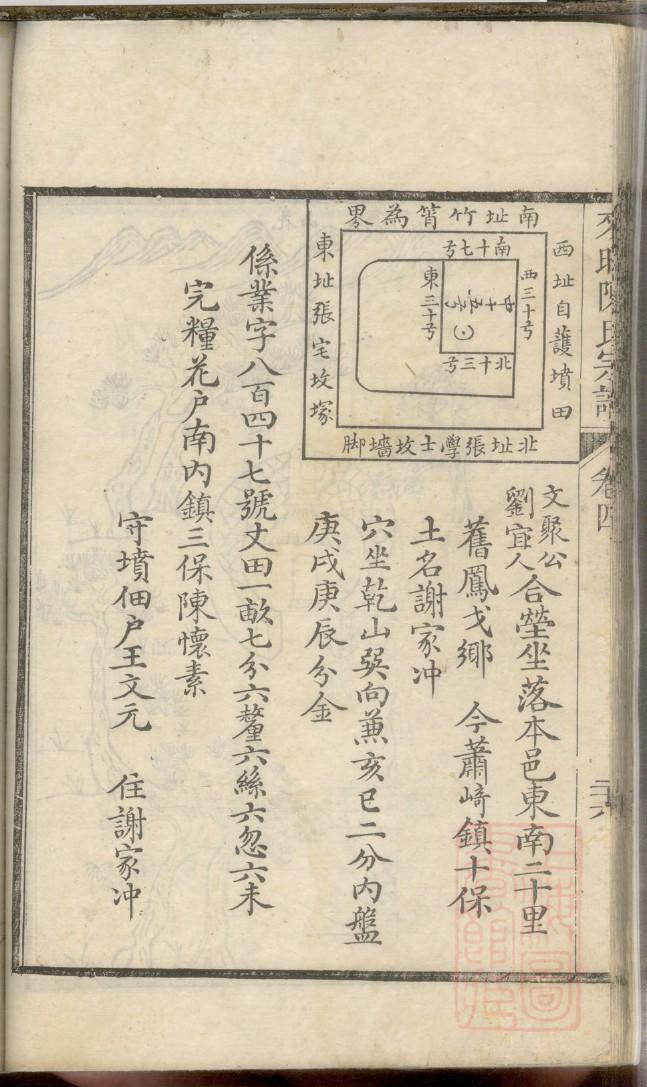 陳氏宗譜
卷四
二十六
南址竹箐為界
西址自護墳田
東址張宅坟塚
北址張學士坟墻脚
南十七号
西三十号
中十五号
東三十号
北十三号
文聚公
劉宜人
合塋坐落本邑東南二十里
舊鳳戈鄉 今蕭﨑鎮十保
土名謝家冲
穴坐乾山巽向兼亥巳二分内盤
庚戌庚辰分金
係業字八百四十七號丈田一畝七分六釐六絲六忽六末
完糧花户南内鎮三保陳懷素
守墳佃户王文元 住謝家冲